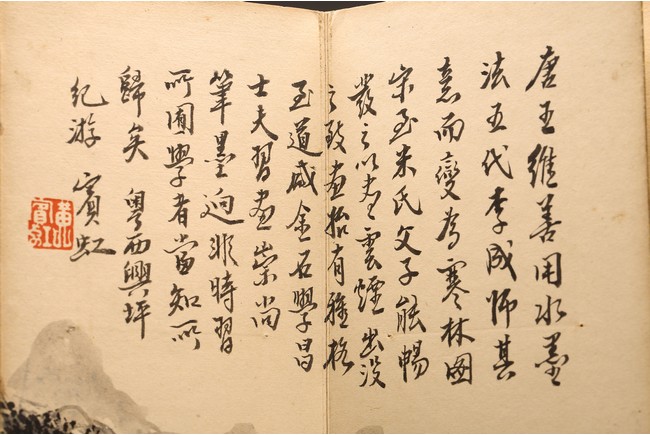 唐王維善用水墨
法五代李成師其
意而變為寒林圖
宋至米氏父子能暢
發之以盡雲煙出没
之致畫始有雅格
至道咸金石學昌
士夫習畫崇尚
筆墨迥非時習
所囿學者當知所
歸矣 粵西興坪
紀游 賓虹
黃賓虹